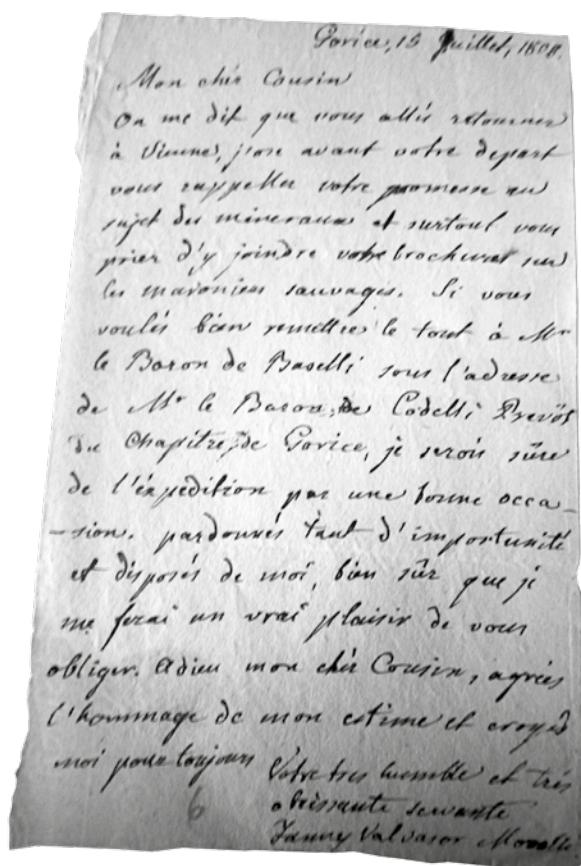 Gorice, 15 Juillet, 1808.
Mon chér Cousin
On me dit que vous allés retourner
à Vienne, j'ose avant votre depart
vous rappeller votre promesse au
sujet des mineraux et surtout vous
prier d'y joindre votre brochures sur
les maroniers sauvages. Si vous
voulés bien remettre le tout à Mr
le Baron de Baselli sous l'adresse
de Mr le Baron de Codelli Prevôt
du Chapitre de Gorice, je serois sûre
de l'éxpedition par une bonne occa-
-sion. pardonnés tant d'importunité
et disposés de moi, bien sûr que je
me ferai un vrai plaisir de vous
obliger. Adieu mon chér Cousin, agréés
l'hommage de mon estime et croyés
moi pour toujours
Votre tres humble et trés
obeissante servante
Fanney Valvasor
6